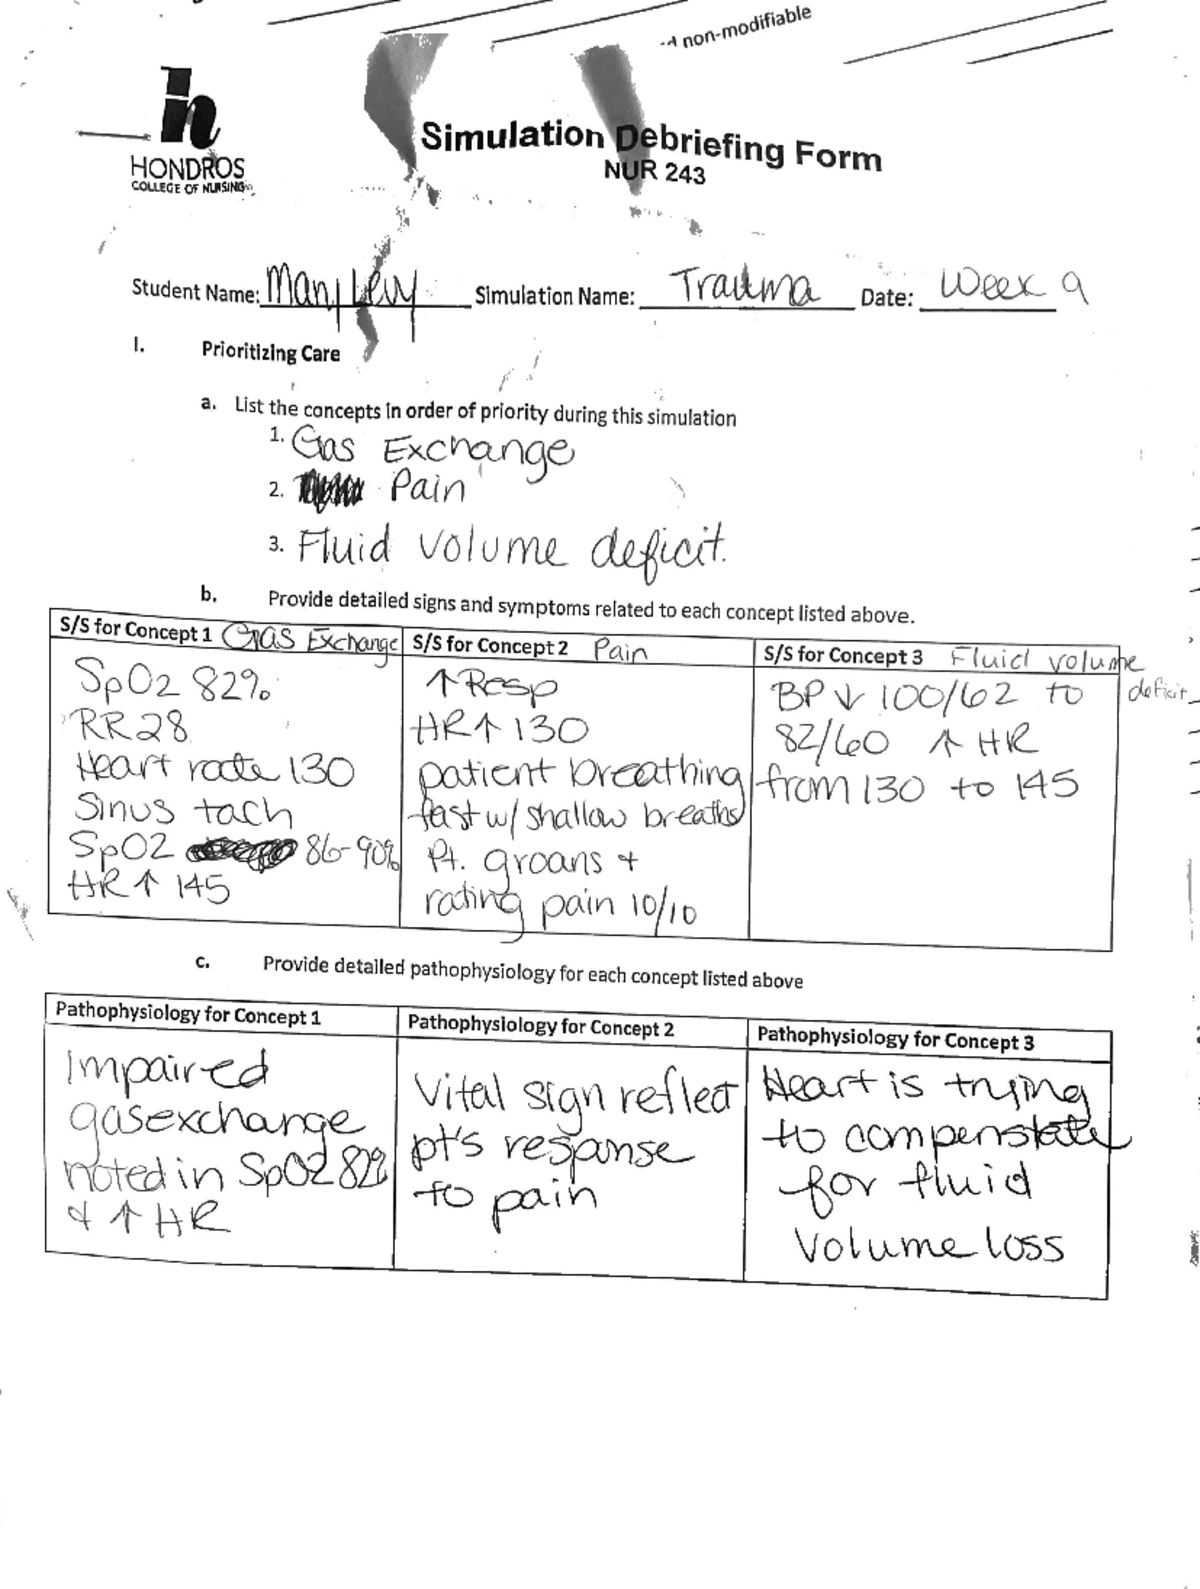 non-modifiable
HONDROS
COLLEGE OF NURSING
Simulation Debriefing Form
NUR 243
Student Name: Mary Levy Simulation Name: Trauma Date: Week 9
I. Prioritizing Care
a. List the concepts in order of priority during this simulation
1. Gas Exchange
2. Pain
3. Fluid volume deficit.
b. Provide detailed signs and symptoms related to each concept listed above.
S/S for Concept 1 Gas Exchange
SpO2 82%
RR 28
Heart rate 130
Sinus tach
SpO2 86-90%
HR ↑ 145
S/S for Concept 2 Pain
↑ Resp
HR ↑ 130
patient breathing
fast w/ shallow breaths
Pt. groans +
rating pain 10/10
S/S for Concept 3 Fluid volume
deficit
BP ↓ 100/62 to
82/60 ↑ HR
from 130 to 145
c. Provide detailed pathophysiology for each concept listed above
Pathophysiology for Concept 1
Impaired
gas exchange
noted in SpO2 82%
& ↑ HR
Pathophysiology for Concept 2
Vital sign reflect
pt's response
to pain
Pathophysiology for Concept 3
Heart is trying
to compenstate
for fluid
volume loss